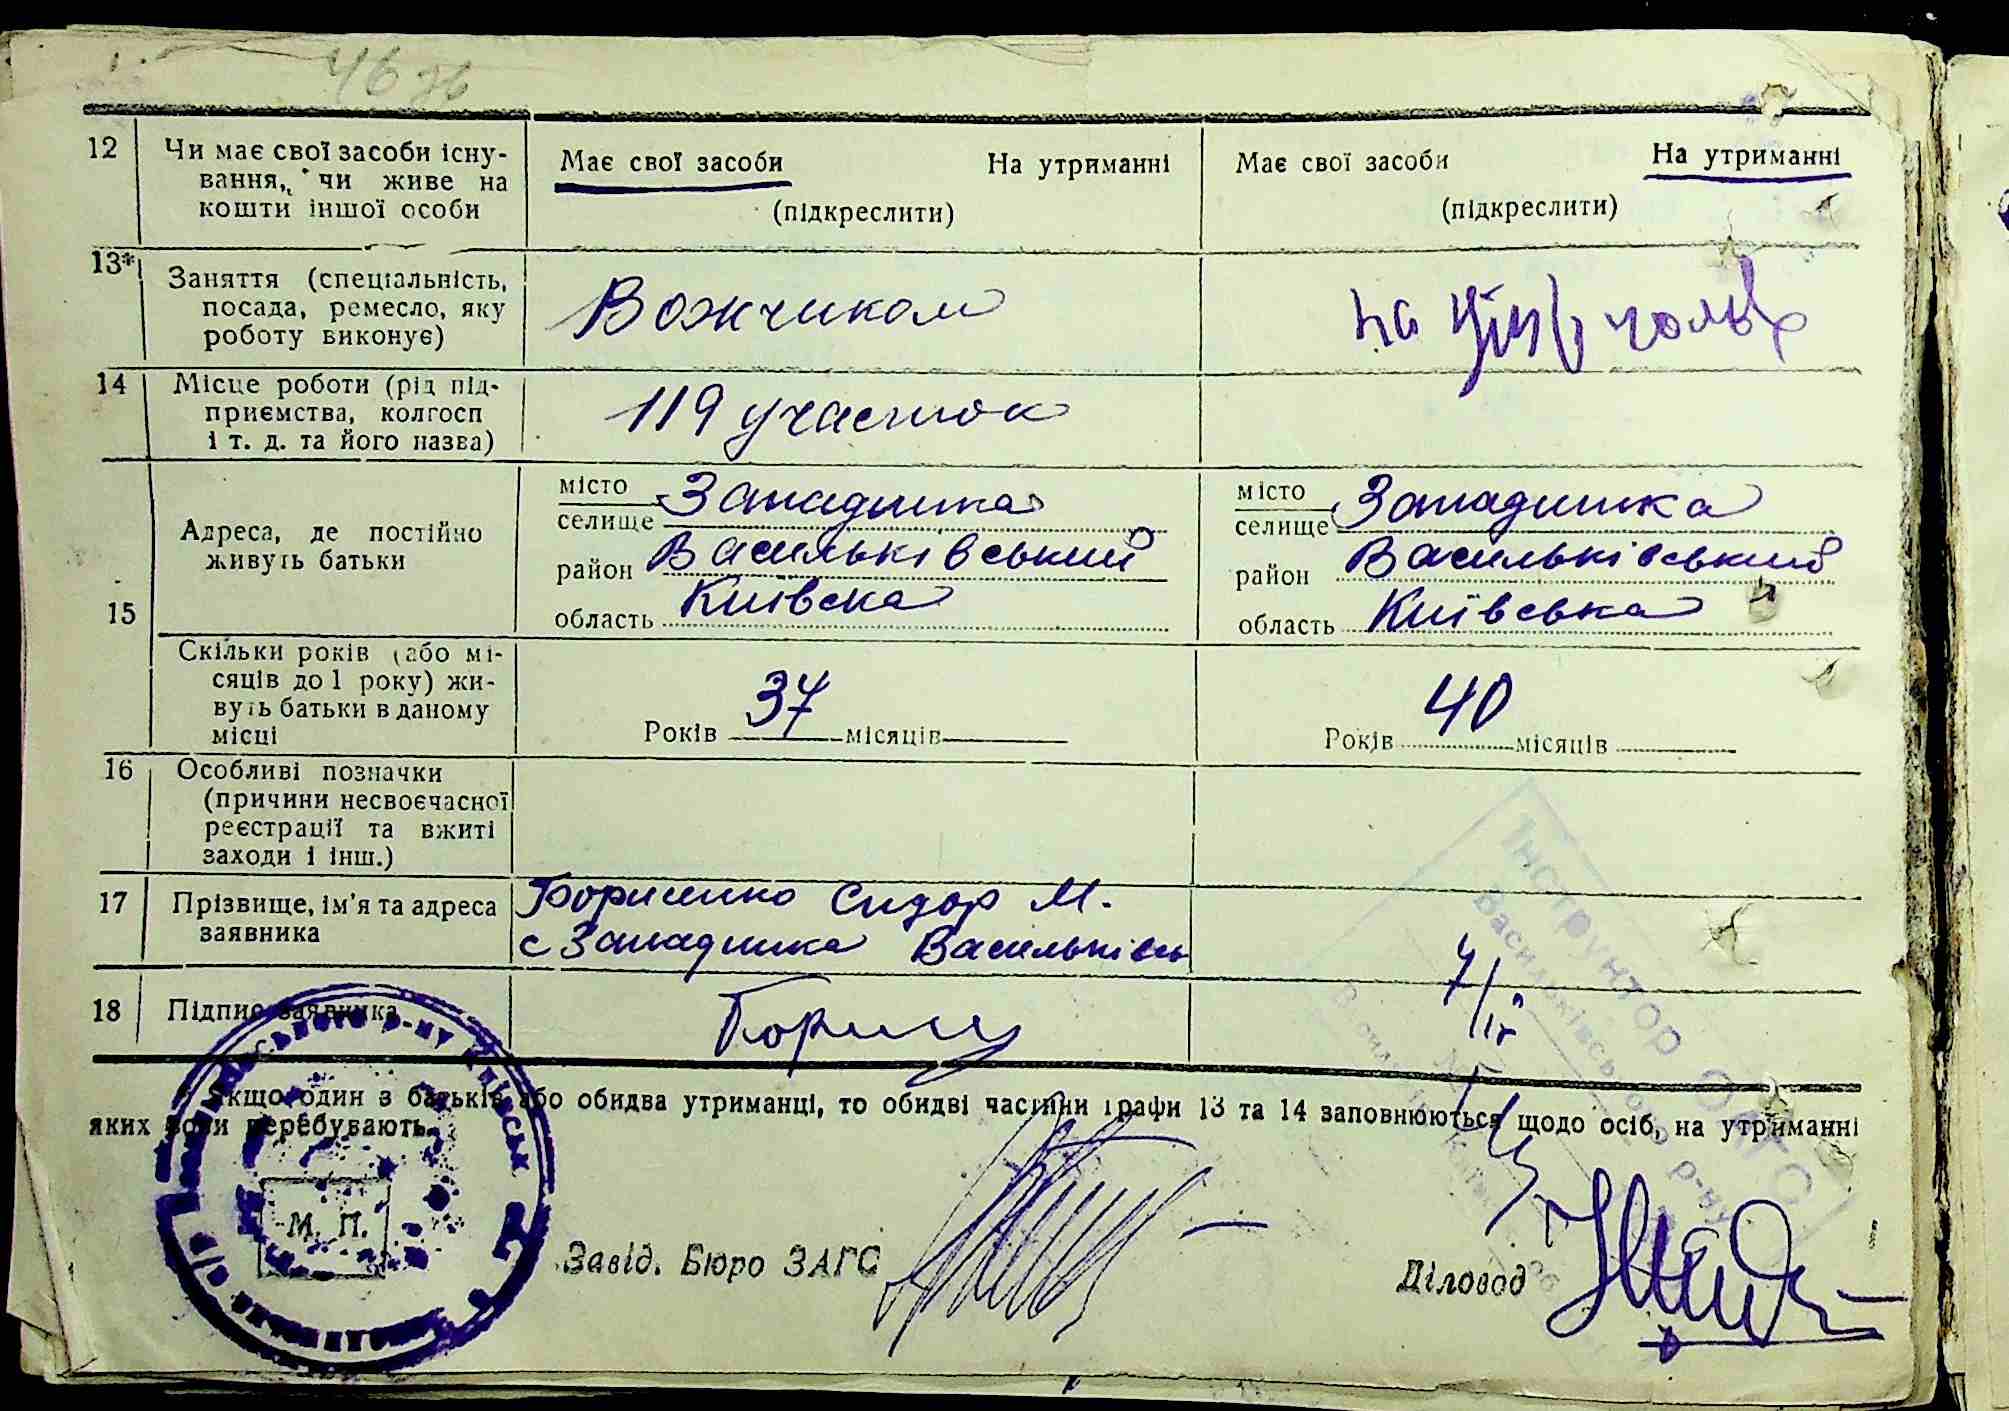 12
Чи має свої засоби існу-
вання, чи живе на
кошти іншої особи
Має свої засоби На утриманні
(підкреслити)
Має свої засоби На утриманні
(підкреслити)
13*
Заняття (спеціальність,
посада, ремесло, яку
роботу виконує)
Вожчиком
на
14
Місце роботи (рід під-
приємства, колгосп
і т. д. та його назва)
119 участок
15
Адреса, де постійно
живуть батьки
місто
селище Западинка
район Васильківський
область Київська
місто
селище Западинка
район Васильківський
область Київська
Скільки років (або мі-
сяців до 1 року) жи-
вуть батьки в даному
місці
Років 37 місяців
Років 40 місяців
16
Особливі позначки
(причини несвоєчасної
реєстрації та вжиті
заходи і інш.)
17
Прізвище, ім'я та адреса
заявника
Борисенко Сидор М.
с Западинка Васильківсь
18
Підпис заявника
* Якщо один з батьків або обидва утриманці, то обидві частини графи 13 та 14 заповнюються щодо осіб, на утриманні
яких вони перебувають.
М. П.
Завід. Бюро ЗАГС
Діловод
Інструктор
Васильківського р-ну